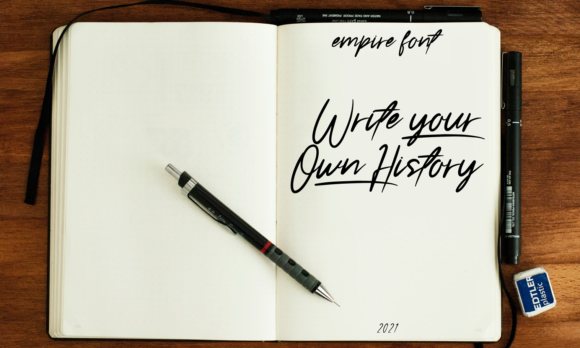 empire font
Write your
Own History
2021
EDTLER
plastic